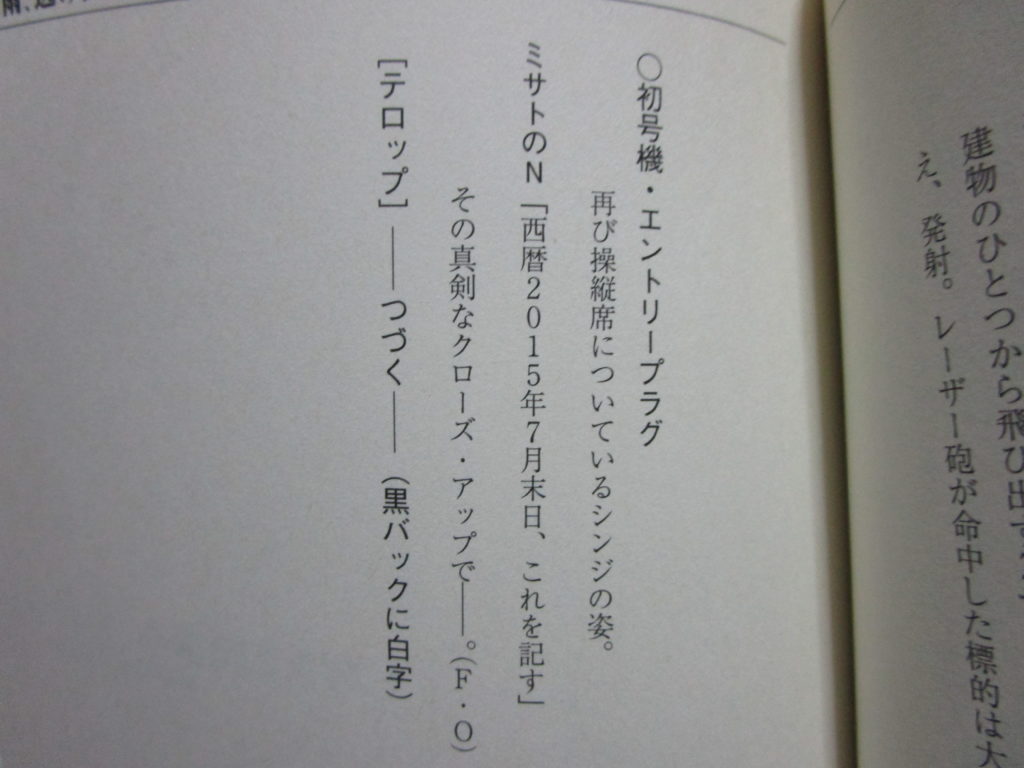 建物のひとつから飛び出す
え、発射。レーザー砲が命中した標的は大
○初号機・エントリープラグ
再び操縦席についているシンジの姿。
ミサトのN「西暦2015年7月末日、これを記す」
その真剣なクローズ・アップで――。(F・O)
[テロップ] ――つづく―― (黒バックに白字)